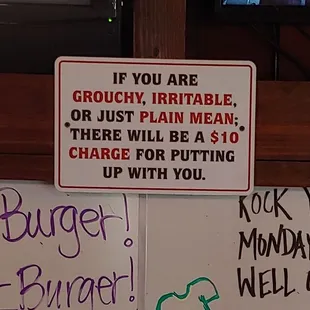 IF YOU ARE
GROUCHY, IRRITABLE,
OR JUST PLAIN MEAN;
THERE WILL BE A $10
CHARGE FOR PUTTING
UP WITH YOU.
Burger!
-Burger!
ROCK
MONDAY
WELL